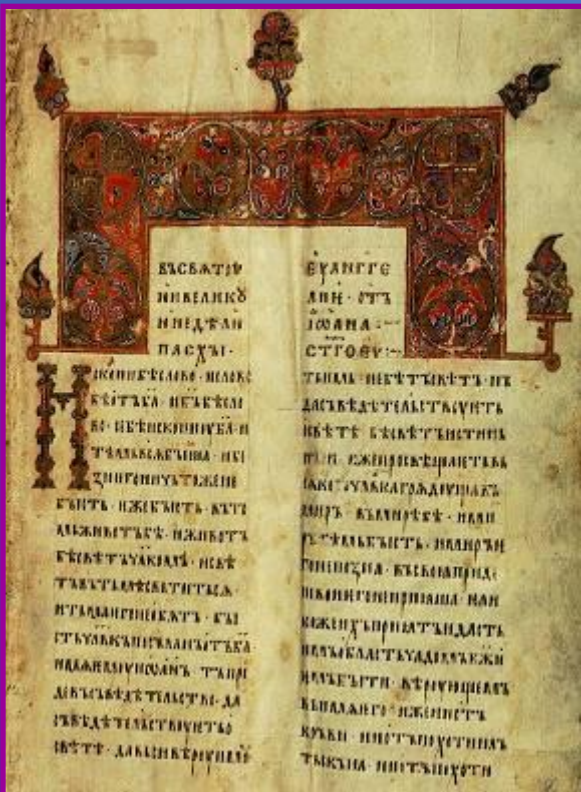 ВЪСВѦТѢИ
ИВЕЛИКѢ
ИНЕДѢЛИ
ПАСХЫ·
ИСКОНИБѢСЛОВО· ИСЛОВО
БѢОТЪБА· ИБЪБѢСЛО
ВО· СЕБѢИСКОНИОУБА· И
ТѢМЬВСѦБЫША· ИБЕ
БЫСТЬ· ИЖЕБЫСТЬ· ВЪТО
МЬЖИВОТЪБѢ· ИЖИВОТЪ
БѢСВѢТЪЧЛКОМЪ· ИСВѢ
ТЪВЪТЬМѢСВѢТИТЬСѦ·
ИТЬМАИЕГОНЕОБѦТЪ· БЫ
СТЬЧЛКЪПОСЪЛАНЪОТЪБА
ИМѦЕМОУИОАНЪ· ТЪПРИ
ДЕВЪСЪВѢДѢТЕЛЬСТВО· ДА
СЪВѢДѢТЕЛЬСТВОУЕТЬО
СВѢТѢ· ДАВЬСИВѢРОУИМОУ
ЕУАНГГЕ
ЛИИ· ОТЪ
ІѠАНА
СТГОЕУ
ТЬИМЬ· НЕБѢТЪСВѢТЪ· НЪ
ДАСЪВѢДѢТЕЛЬСТВОУЕТЬ
ОСВѢТѢ· БѢСВѢТЪИСТИНЬ
НЫИ· ИЖЕПРОСВѢЩАЕТЬВЬ
СЯКОГОЧЛВКАГРѦДОУЩАВЪ
МИРЪ· ВЪМИРѢБѢ· ИМИ
РЪТѢМЬБЫСТЬ· ИМИРЪИ
ЕГОНЕПОЗНА· ВЪСВОЯПРИДЕ·
ИСВОИЕГОНЕПРИЯША· ЕЛИ
КОЖЕИХЪПРИѦТЪИДАСТЬ
ИМЪОБЛАСТЬЧАДОМЪБЖИ
ЕМЪБЫТИ· ВѢРОУЮЩЕМЪ
ВЪИМѦЕГО· ИЖЕНЕОТЪ
КРЪВИ· НИОТЪПОХОТИПЛЪ
ТЬСКЫѦ· НИОТЪПОХОТИ